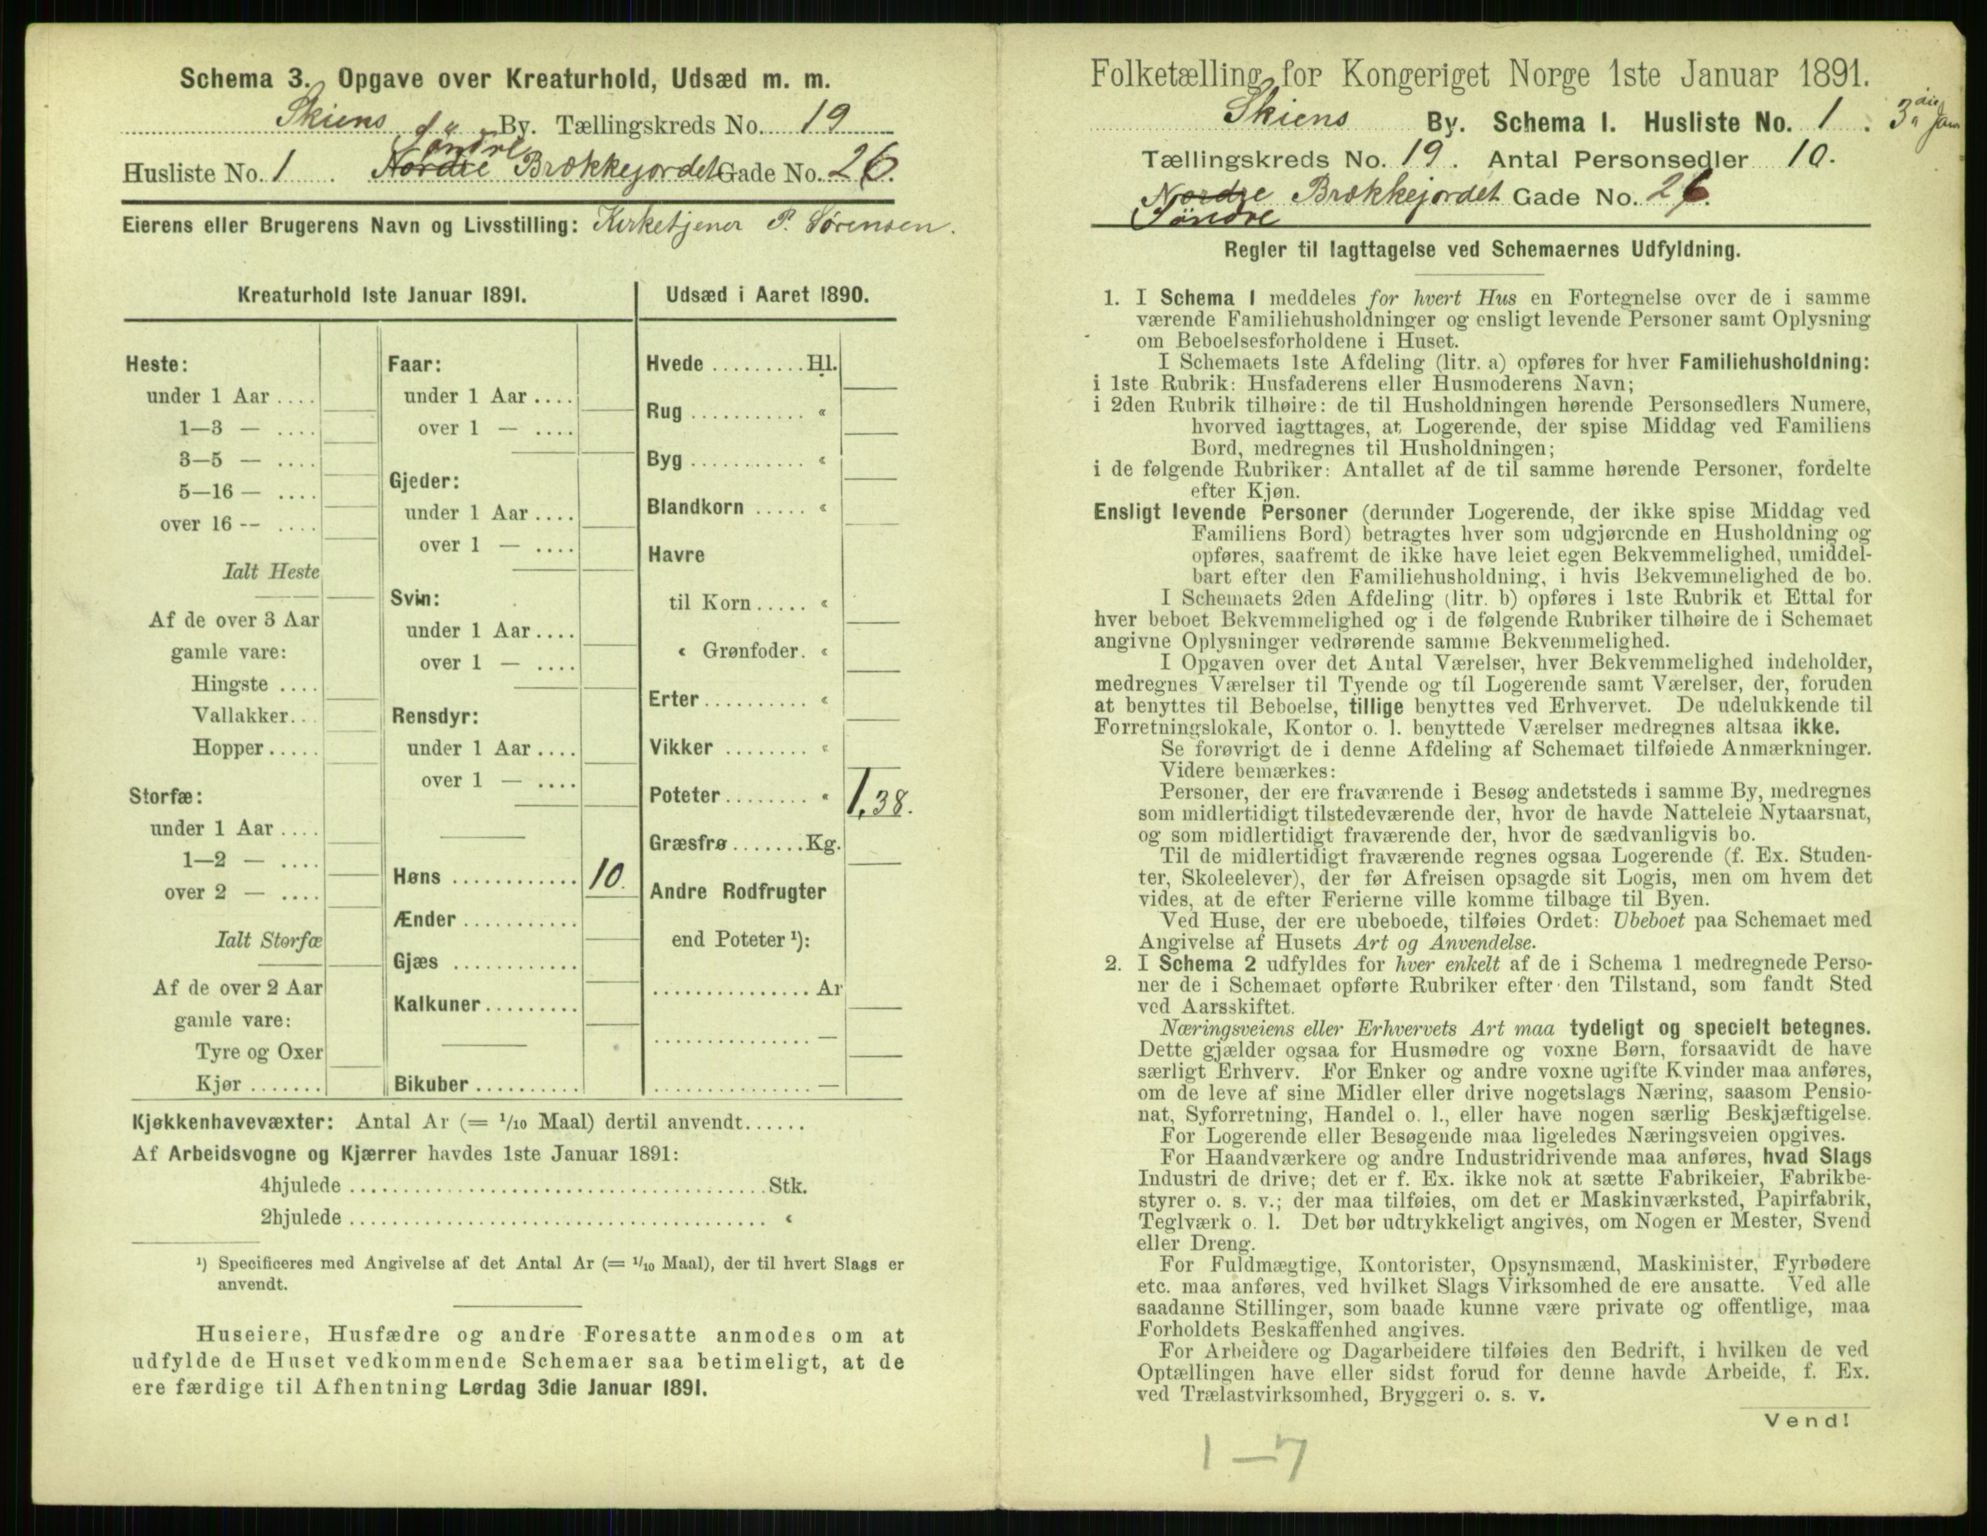 Schema 3. Opgave over Kreaturhold, Udsæd m. m.
Skiens By. Tællingskreds No. 19
Søndre
Husliste No. 1 Nordre Brækkejordet Gade No. 26.
Eierens eller Brugerens Navn og Livsstilling: Kirketjener P. Sørensen.
Kreaturhold 1ste Januar 1891.
Heste:
under 1 Aar ....
1—3 — ....
3—5 — ....
5—16 — ....
over 16 -- ....
Ialt Heste
Af de over 3 Aar
gamle vare:
Hingste ....
Vallakker...
Hopper.....
Storfæ:
under 1 Aar ....
1—2 — ....
over 2 — ....
Ialt Storfæ
Af de over 2 Aar
gamle vare:
Tyre og Oxer
Kjør .......
Faar:
under 1 Aar ....
over 1 — ....
Gjeder:
under 1 Aar ....
over 1 — ....
Svin:
under 1 Aar ....
over 1 — ....
Rensdyr:
under 1 Aar ....
over 1 — ....
Høns ............ 10.
Ænder ...........
Gjæs ............
Kalkuner .........
Bikuber ..........
Udsæd i Aaret 1890.
Hvede ......... Hl.
Rug ........... «
Byg ........... «
Blandkorn ..... «
Havre
til Korn ..... «
« Grønfoder. «
Erter .......... «
Vikker ........ «
Poteter ........ « 1,38.
Græsfrø ....... Kg.
Andre Rodfrugter
end Poteter ¹):
............... Ar
............... —
............... —
Kjøkkenhavevæxter: Antal Ar (= 1/10 Maal) dertil anvendt......
Af Arbeidsvogne og Kjærrer havdes 1ste Januar 1891:
4hjulede ........................................ Stk.
2hjulede ........................................ «
¹) Specificeres med Angivelse af det Antal Ar (= 1/10 Maal), der til hvert Slags er
anvendt.
Huseiere, Husfædre og andre Foresatte anmodes om at
udfylde de Huset vedkommende Schemaer saa betimeligt, at de
ere færdige til Afhentning Lørdag 3die Januar 1891.
Folketælling for Kongeriget Norge 1ste Januar 1891.
Skiens By. Schema I. Husliste No. 1. 3die Jan
Tællingskreds No. 19. Antal Personsedler 10.
Nordre Brækkejordet Gade No. 26.
Søndre
Regler til Iagttagelse ved Schemaernes Udfyldning.
1. I Schema 1 meddeles for hvert Hus en Fortegnelse over de i samme
værende Familiehusholdninger og ensligt levende Personer samt Oplysning
om Beboelsesforholdene i Huset.
I Schemaets 1ste Afdeling (litr. a) opføres for hver Familiehusholdning:
i 1ste Rubrik: Husfaderens eller Husmoderens Navn;
i 2den Rubrik tilhøire: de til Husholdningen hørende Personsedlers Numere,
hvorved iagttages, at Logerende, der spise Middag ved Familiens
Bord, medregnes til Husholdningen;
i de følgende Rubriker: Antallet af de til samme hørende Personer, fordelte
efter Kjøn.
Ensligt levende Personer (derunder Logerende, der ikke spise Middag ved
Familiens Bord) betragtes hver som udgjørende en Husholdning og
opføres, saafremt de ikke have leiet egen Bekvemmelighed, umiddel-
bart efter den Familiehusholdning, i hvis Bekvemmelighed de bo.
I Schemaets 2den Afdeling (litr. b) opføres i 1ste Rubrik et Ettal for
hver beboet Bekvemmelighed og i de følgende Rubriker tilhøire de i Schemaet
angivne Oplysninger vedrørende samme Bekvemmelighed.
I Opgaven over det Antal Værelser, hver Bekvemmelighed indeholder,
medregnes Værelser til Tyende og til Logerende samt Værelser, der, foruden
at benyttes til Beboelse, tillige benyttes ved Erhvervet. De udelukkende til
Forretningslokale, Kontor o. l. benyttede Værelser medregnes altsaa ikke.
Se forøvrigt de i denne Afdeling af Schemaet tilføiede Anmærkninger.
Videre bemærkes:
Personer, der ere fraværende i Besøg andetsteds i samme By, medregnes
som midlertidigt tilstedeværende der, hvor de havde Natteleie Nytaarsnat,
og som midlertidigt fraværende der, hvor de sædvanligvis bo.
Til de midlertidigt fraværende regnes ogsaa Logerende (f. Ex. Studen-
ter, Skoleelever), der før Afreisen opsagde sit Logis, men om hvem det
vides, at de efter Ferierne ville komme tilbage til Byen.
Ved Huse, der ere ubeboede, tilføies Ordet: Ubeboet paa Schemaet med
Angivelse af Husets Art og Anvendelse.
2. I Schema 2 udfyldes for hver enkelt af de i Schema 1 medregnede Perso-
ner de i Schemaet opførte Rubriker efter den Tilstand, som fandt Sted
ved Aarsskiftet.
Næringsveiens eller Erhvervets Art maa tydeligt og specielt betegnes.
Dette gjælder ogsaa for Husmødre og voxne Børn, forsaavidt de have
særligt Erhverv. For Enker og andre voxne ugifte Kvinder maa anføres,
om de leve af sine Midler eller drive nogetslags Næring, saasom Pensio-
nat, Syforretning, Handel o. l., eller have nogen særlig Beskjæftigelse.
For Logerende eller Besøgende maa ligeledes Næringsveien opgives.
For Haandværkere og andre Industridrivende maa anføres, hvad Slags
Industri de drive; det er f. Ex. ikke nok at sætte Fabrikeier, Fabrikbe-
styrer o. s. v.; der maa tilføies, om det er Maskinværksted, Papirfabrik,
Teglværk o. l. Det bør udtrykkeligt angives, om Nogen er Mester, Svend
eller Dreng.
For Fuldmægtige, Kontorister, Opsynsmænd, Maskinister, Fyrbødere
etc. maa anføres, ved hvilket Slags Virksomhed de ere ansatte. Ved alle
saadanne Stillinger, som baade kunne være private og offentlige, maa
Forholdets Beskaffenhed angives.
For Arbeidere og Dagarbeidere tilføies den Bedrift, i hvilken de ved
Optællingen have eller sidst forud for denne havde Arbeide, f. Ex.
ved Trælastvirksomhed, Bryggeri o. s. v.
Vend!
1—7